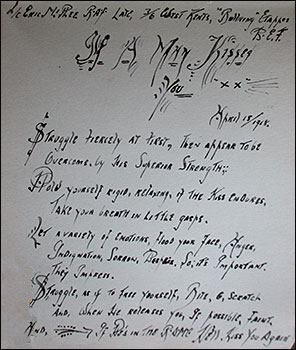 Eric McPhee R.A.F. Late, 3/6 West Kents, "Bullring" Etaples
B.E.F.
If A Man Kisses
You "xx"
April 15/1918.
Struggle fiercely at first, Then appear to be
Overcome, by His Superior Strength;
Hold yourself rigid, relaxing, if the Kiss endures,
Take your breath in Little gasps.
Let a variety of emotions, flood your face, Anger,
Indignation, Sorrow, Despair, So, its Important.
They Impress.
Struggle, as if to Free yourself, Bite, & Scratch
And, When He releases you, If possible, Faint.
And, If He's in the R.A.M.C. He'll Kiss You Again